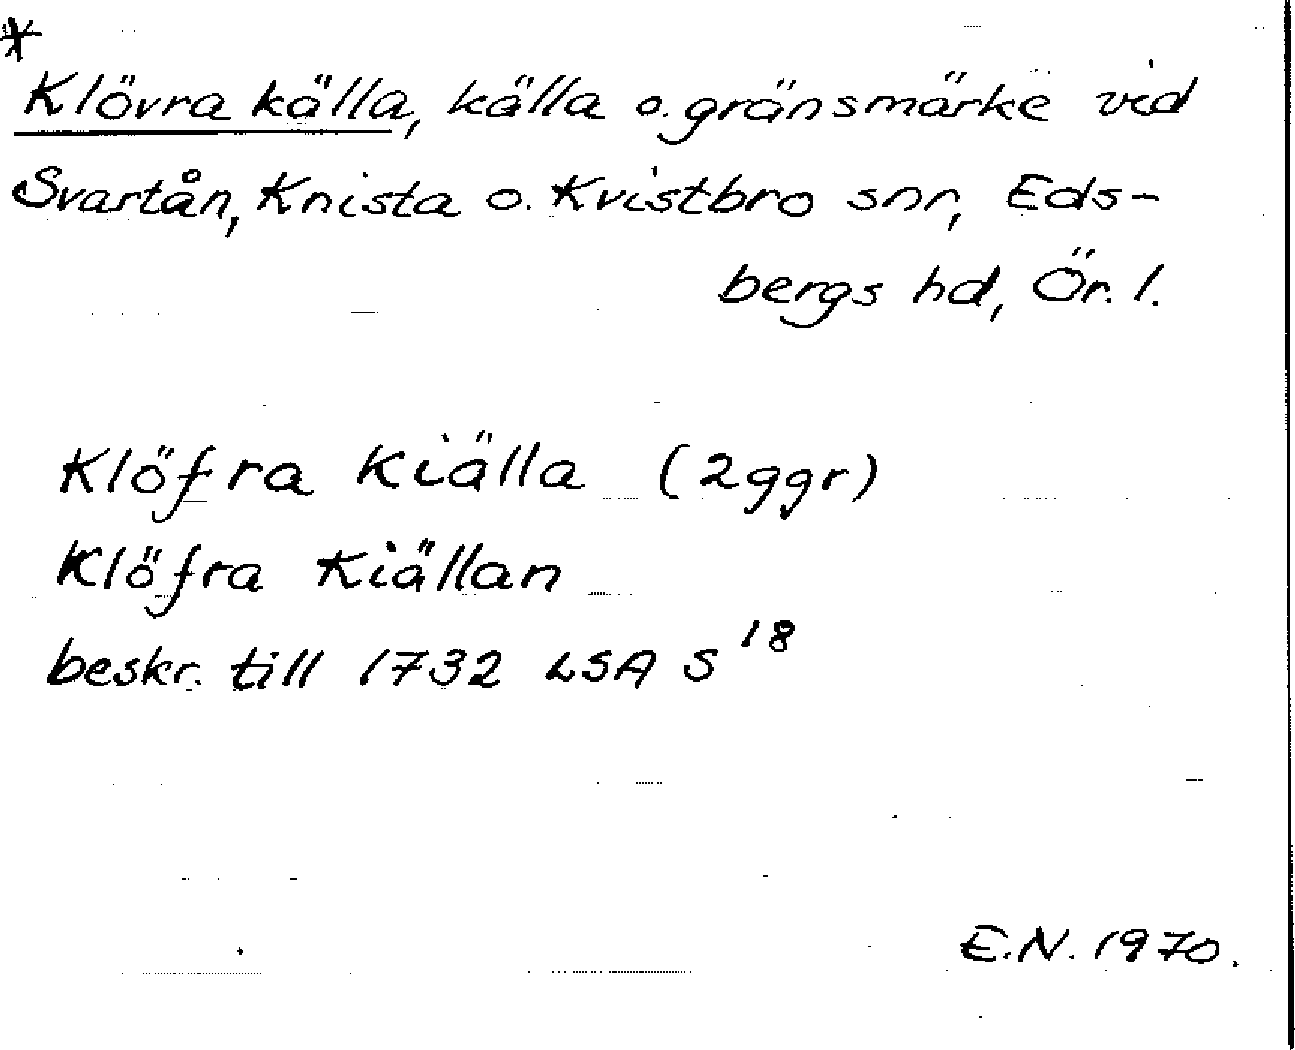 *
Klövra källa, källa o. gränsmärke vid
Svartån, Knista o. Kvistbro snr, Eds-
bergs hd, Ör. l.
Klöfra Kiälla (2ggr)
Klöfra Kiällan
beskr. till 1732 LSA S 18
E.N. 1970.